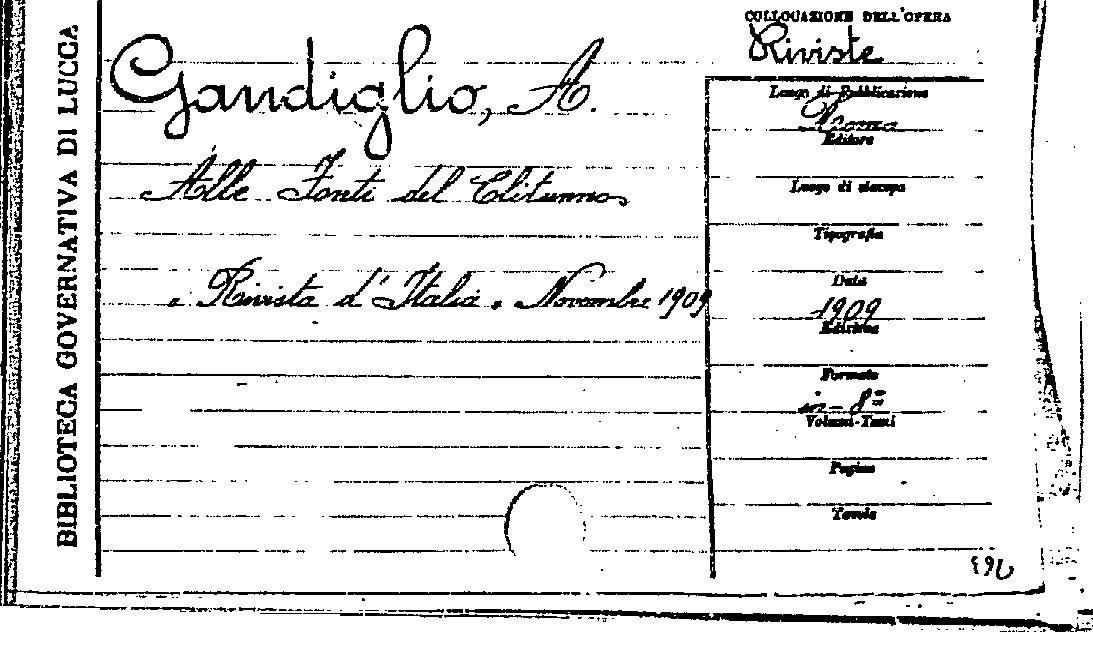 BIBLIOTECA GOVERNATIVA DI LUCCA
COLLOCAZIONE DELL'OPERA
Riviste
Gandiglio, A.
Alle Fonti del Clitunno
« Rivista d'Italia » Novembre 1909
Luogo di Pubblicazione
Roma
Editore
Luogo di stampa
Tipografia
Data
1909
Edizione
Formato
in-8º
Volumi-Tomi
Pagine
Tavole